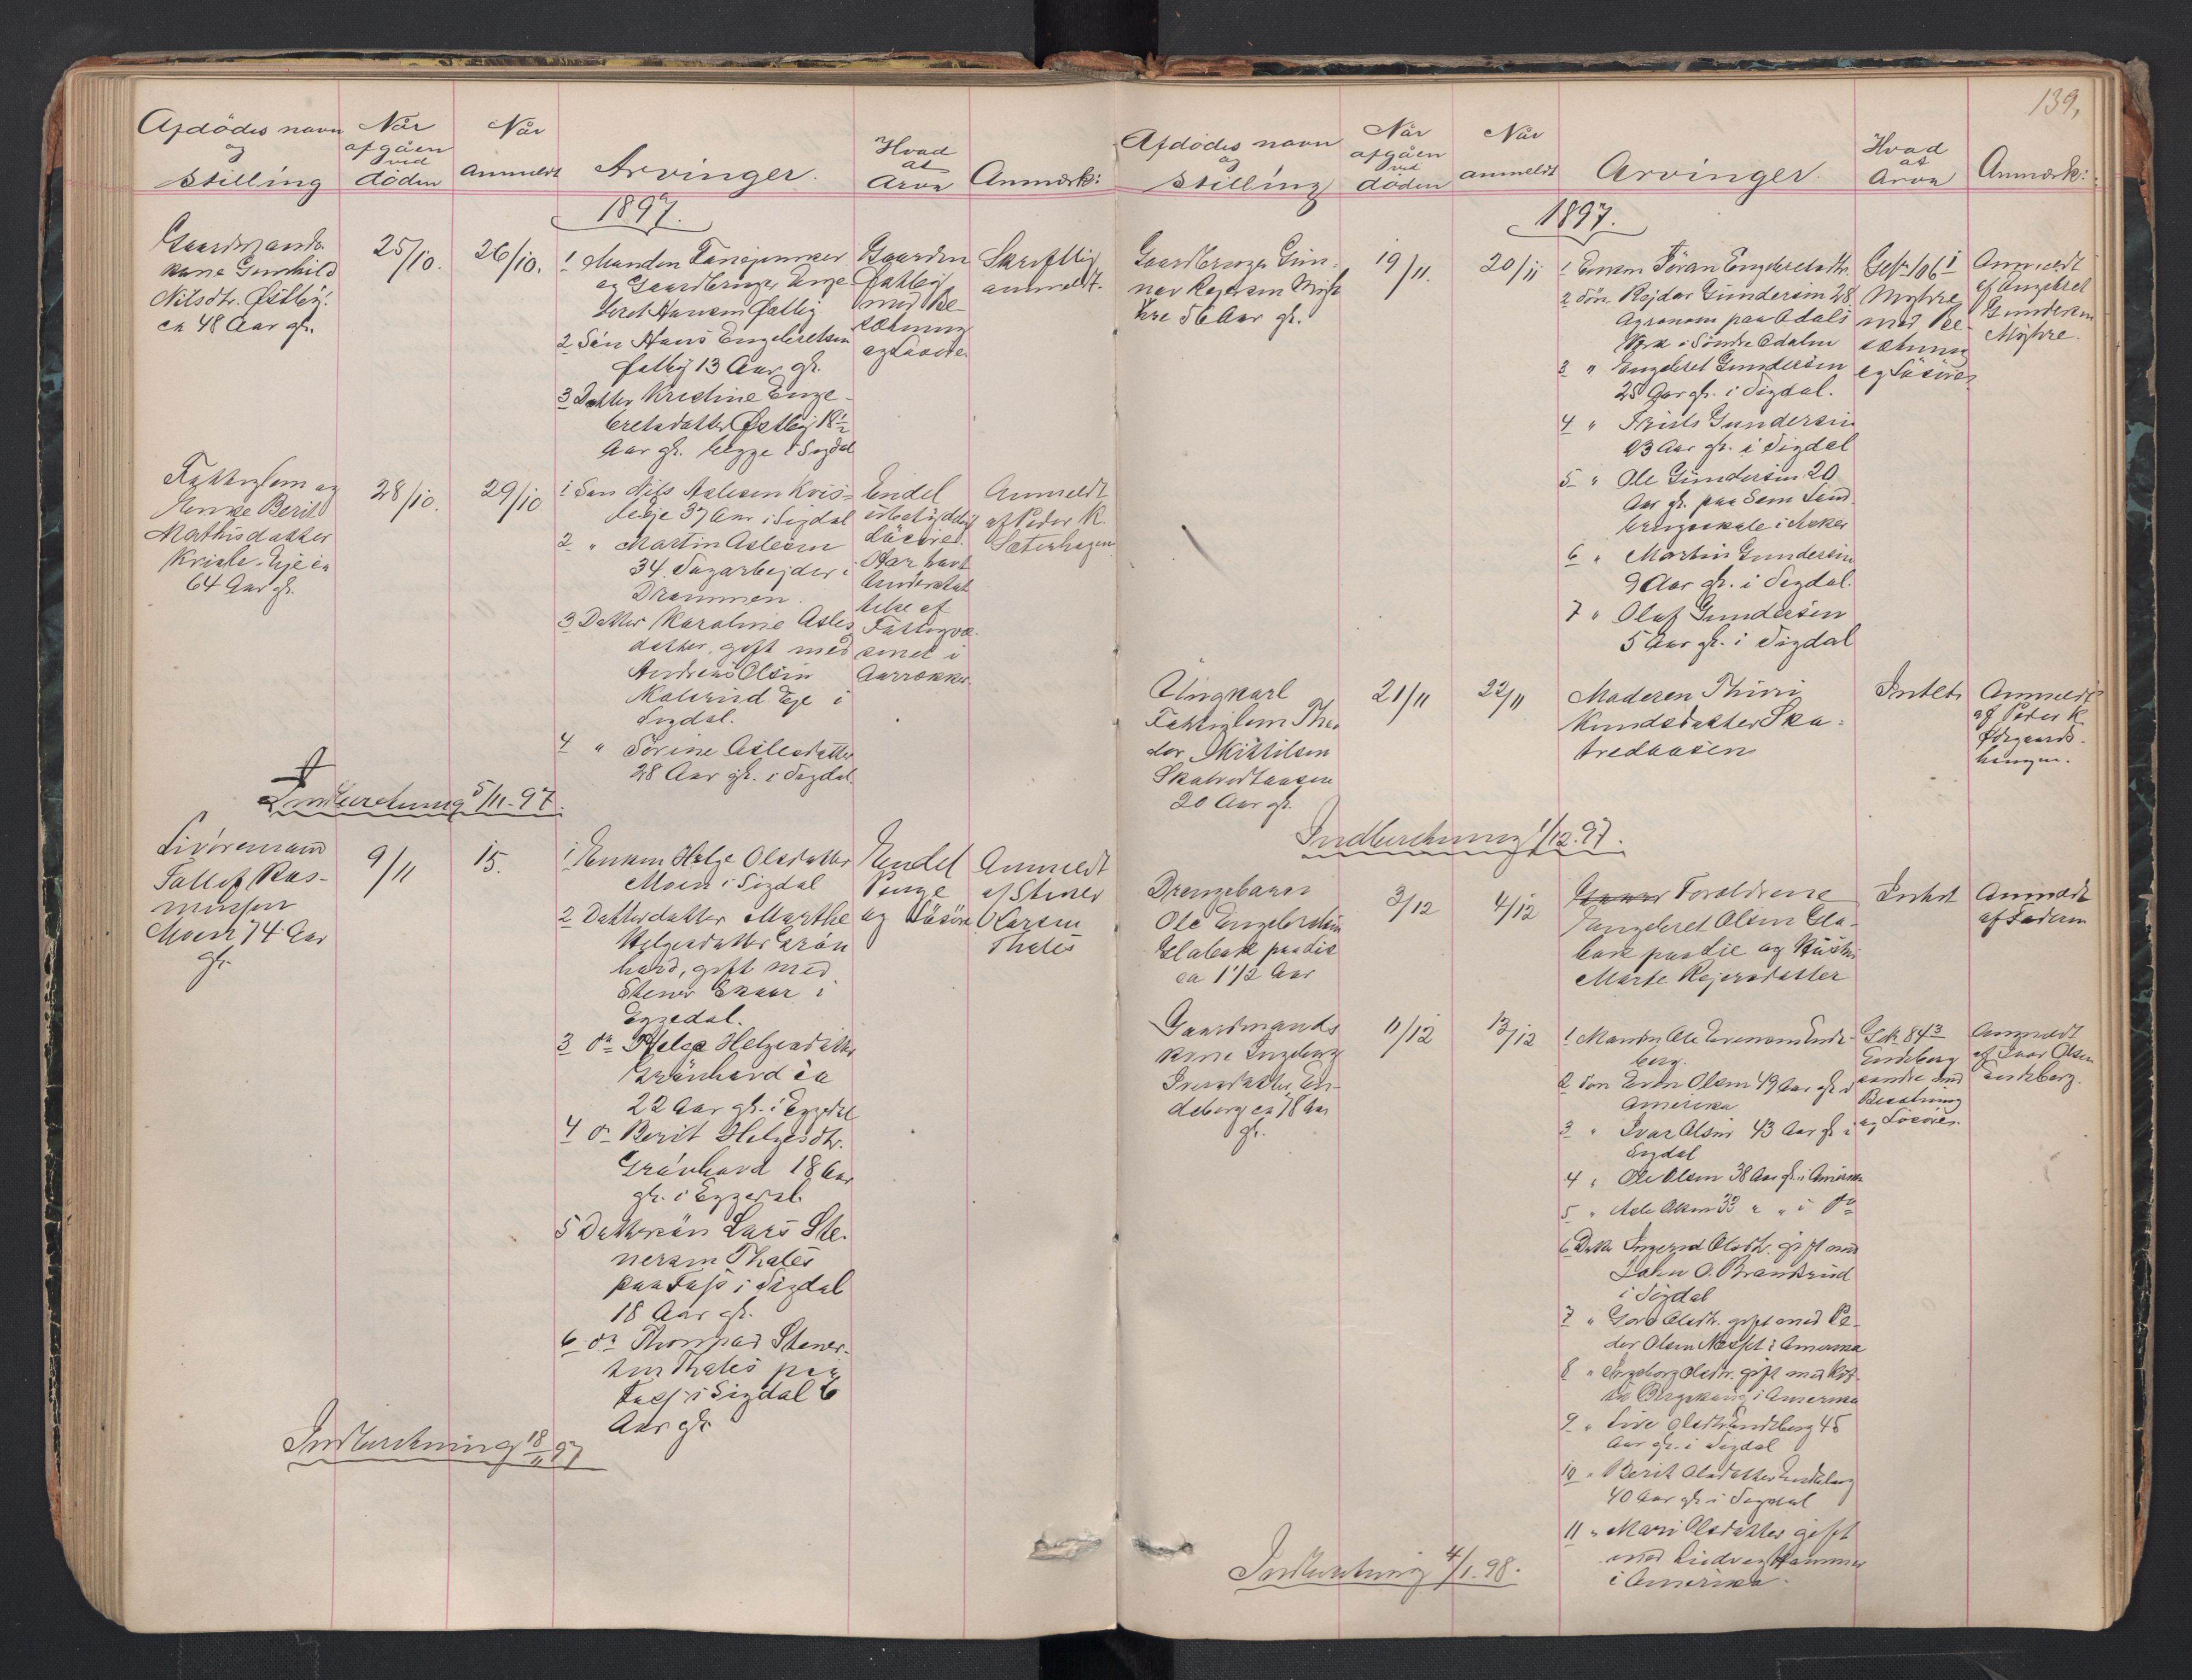 139,
Afdödes navn
og
Stilling
Når
afgåen
ved
döden
Når
anmeldt
Arvinger.
Hvad
at
Arve
Anmærk:
1897.
Gaardmands
kone Gunhild
Nilsdtr. Østby.
ca 48 Aar gl.
25/10.
26/10.
1 Manden
og Gaardbruger Enge
bret Hansen Østby
2 Sön Hans Engebretsen
Østby 13 Aar gl.
3 Datter Kristine Enge-
bretsdatter Østby 18½
Aar gl. begge i Sigdal
Gaarden
Østby
med Be-
sætning
og Løsöre
Skriftlig
anmeldt.
Fattiglem og
Enke Berit
Mathisdatter
Kriste Eje ca
64 Aar gl.
28/10.
29/10
1 Sön Nils Aslesen Kris-
teeje 37 Aar i Sigdal
2 " Martin Aslesen
34. Sagarbejder i
Drammen.
3 Datter Karoline Asles
datter, gift med
Andreas Olsen
Eje i
Sigdal.
4 " Sörine Aslesdatter
28 Aar gl. i Sigdal.
Endel
ubetydelig
Løsöre.
Har havt
Understøt
telse af
Fattigvæ
senet i
Aarrækker.
Anmeldt
af Peder K.
Sæterhagen
Indberetning 5/11.97.
Livöremand
Tollef Ras-
mussen
Moen 74 Aar
gl.
9/11
15.
1 Enken Helge Olsdatter
Moen i Sigdal
2 Datterdatter Marthe
Helgesdatter Grön
hovd, gift med
Stener Skaar i
Eggedal.
3 do Helga Helgesdatter
Grönhovd ca
22 Aar gl. i Eggedal
4 do Berit Helgesdtr.
Grönhovd 18 Aar
gl. i Eggedal.
5 Dattersön Lars Ste-
nersen Thales
paa i Sigdal
18 Aar gl.
6 do Thomas Stener-
sen Thales paa
i Sigdal 6
Aar gl.
Endel
Penge
og Løsöre
Anmeldt
af Stener
Larsen
Thales
Indberetning 18/11 97
Afdödes navn
og
Stilling
Når
afgåen
ved
döden
Når
anmeldt
Arvinger.
Hvad
at
Arve
Anmærk:
1897.
Gaardbruger Gun-
nar Rejersen Myh
hre 56 Aar gl.
19/11.
20/11
1 Enken Jöran Engebretsdtr.
2 Sön Rejdar Gundersen 28
Agronom paa Odals
Værk i Söndre Odalen
3 " Engebret Gundersen
25 Aar gl. i Sigdal.
4 " Nils Gundersen
23 Aar gl. i Sigdal
5 " Ole Gundersen 20
Aar gl. paa Sem Land
brugsskole i Asker
6 " Martin Gundersen
9 Aar gl. i Sigdal.
7 " Olaf Gundersen
5 Aar gl. i Sigdal
106 1
Myhre
med Be-
sætning
og Løsöre
Anmeldt
af Engebret
Gundersen
Myhre.
Ungkarl
Fattiglem Theo
dor Kittilsen
Skatvedtaasen
20 Aar gl.
21/11
22/11
Moderen Thuri
Knudsdatter Ska-
tvedaasen
Intet.
Anmeldt
af Peder K.
haugen.
Indberetning 1/12.97.
Drengebarn
Ole Engebretsen
Glabak paadie
ca 1½ Aar
3/12
4/12
Forældrene
Engebret Olsen Gla-
bak paadie og Hustru
Marte Rejersdatter
Intet
Anmeldt
af Faderen
Gaardmands
kone Ingeborg
Iversdatter En-
deberg ca 78 Aar
gl.
11/12
13/12
1 Manden Ole Evensen Ende-
berg.
2 Sön Even Olsen 49 Aar gl i
Amerika
3 " Ivar Olsen 43 Aar gl. i
Sigdal
4 " Ole Olsen 38 Aar gl. i Amerika
5 " Asle Olsen 33 " " i do
6 Datter Ingerid Olsdtr. gift med
John O. Brankerud
i Sigdal
7 " Goro Olsdtr. gift med Pe-
der Olsen i Amerika
8 " Ingeborg Olsdtr. gift med
i Amerika
9 " Live Olsdtr. Endeberg 45
Aar gl. i Sigdal
10 " Berit Olsdatter Endeberg
40 Aar gl. i Sigdal
11 " Mari Olsdatter gift
med Ludvig Hammer
i Amerika.
84 3
Endeberg
söndre med
Besætning
og Løsöre.
Anmeldt
af Ivar Olsen
Endeberg.
Indberetning 4/1.98.